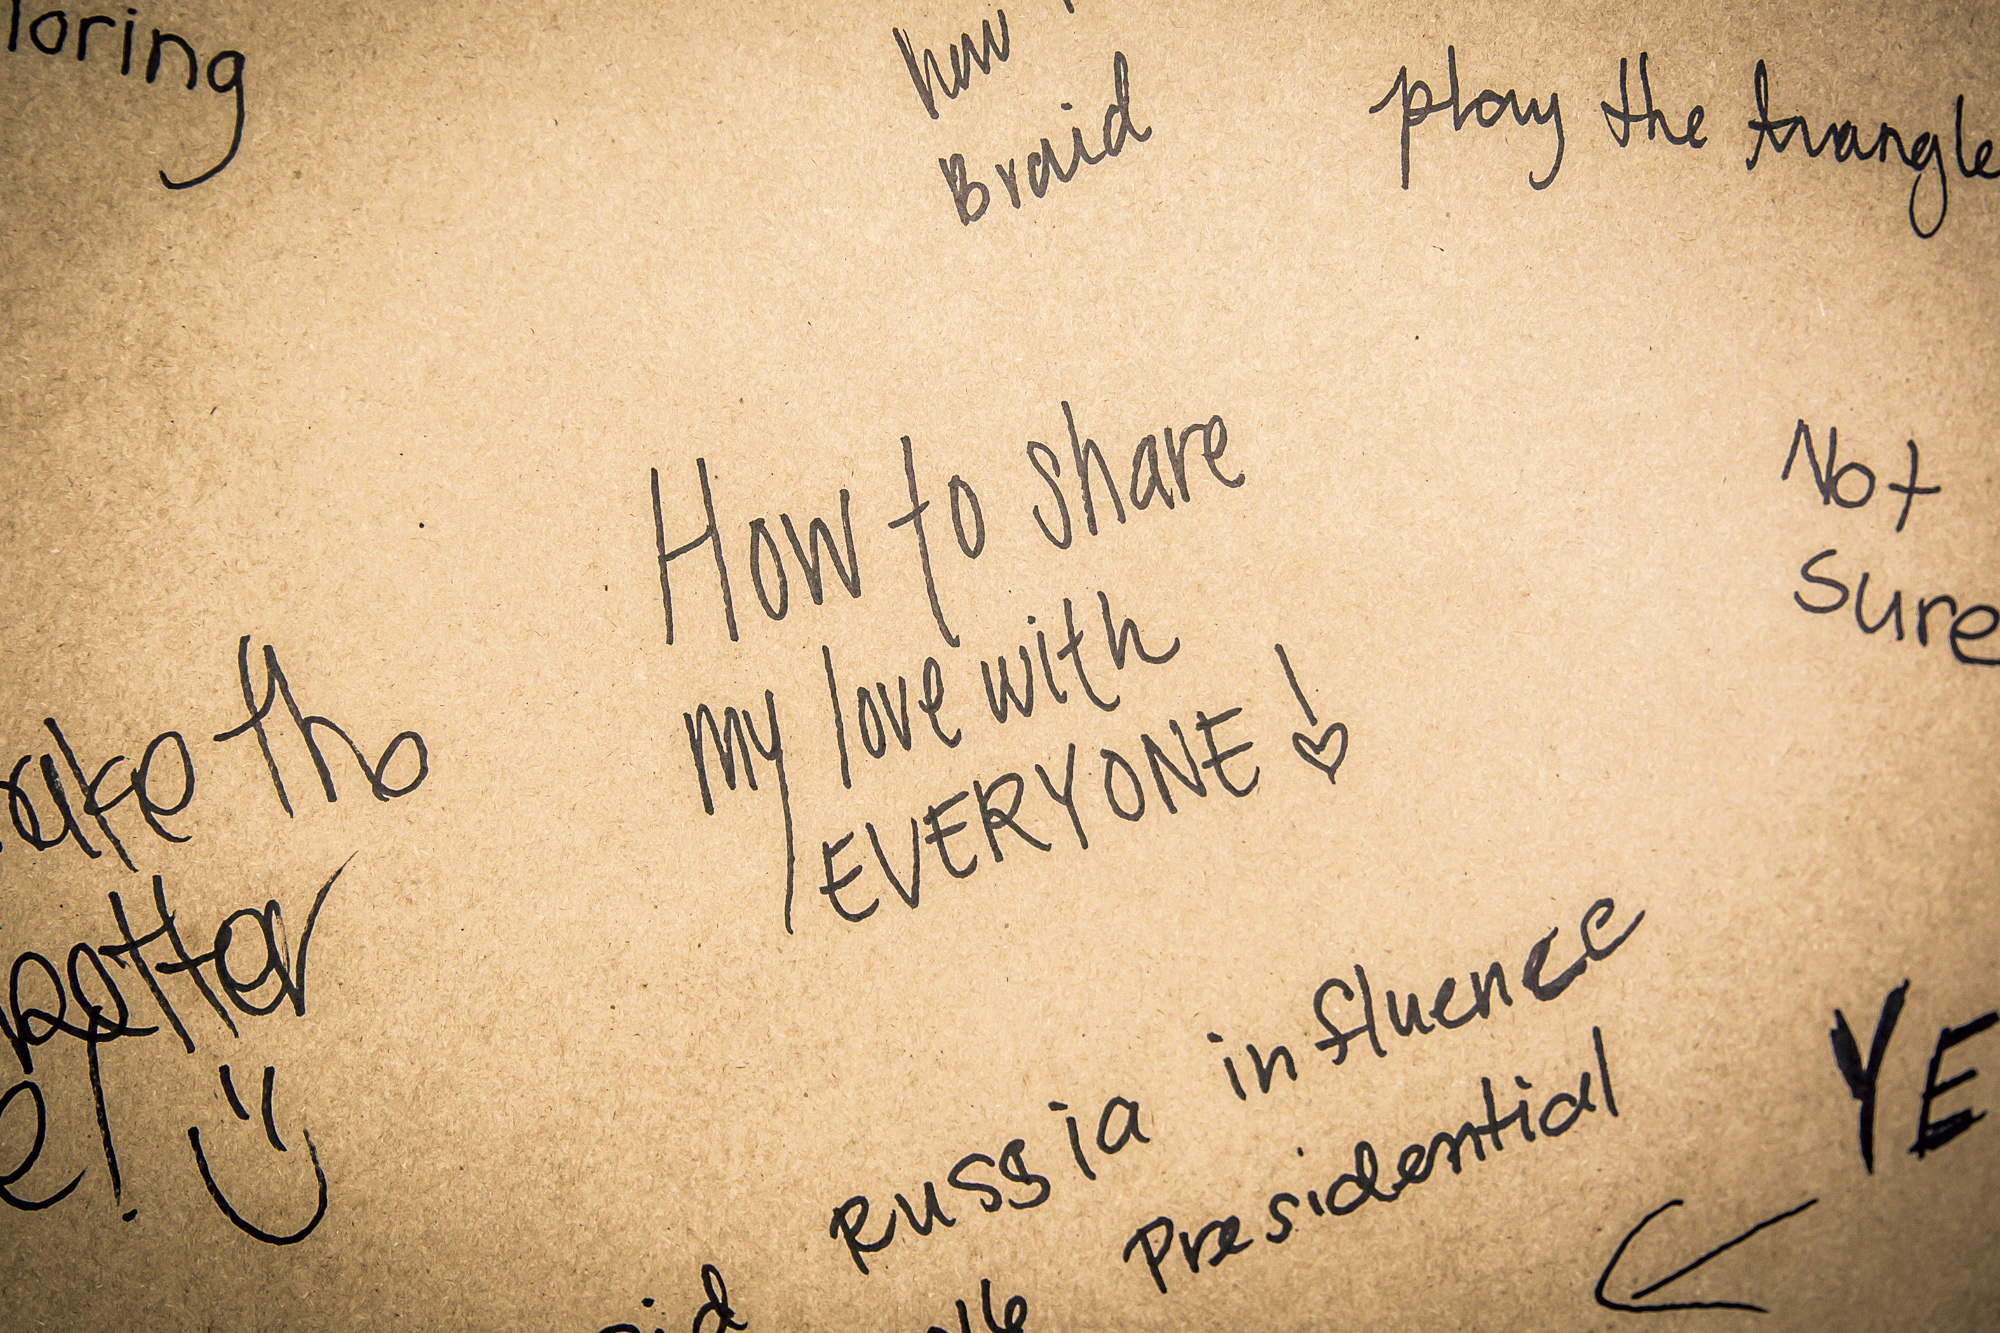 loring
how
Braid
play the triangle
How to share
my love with
EVERYONE!
Not
sure
make the
better
e!
Russia influence
Presidential
YE
id
016